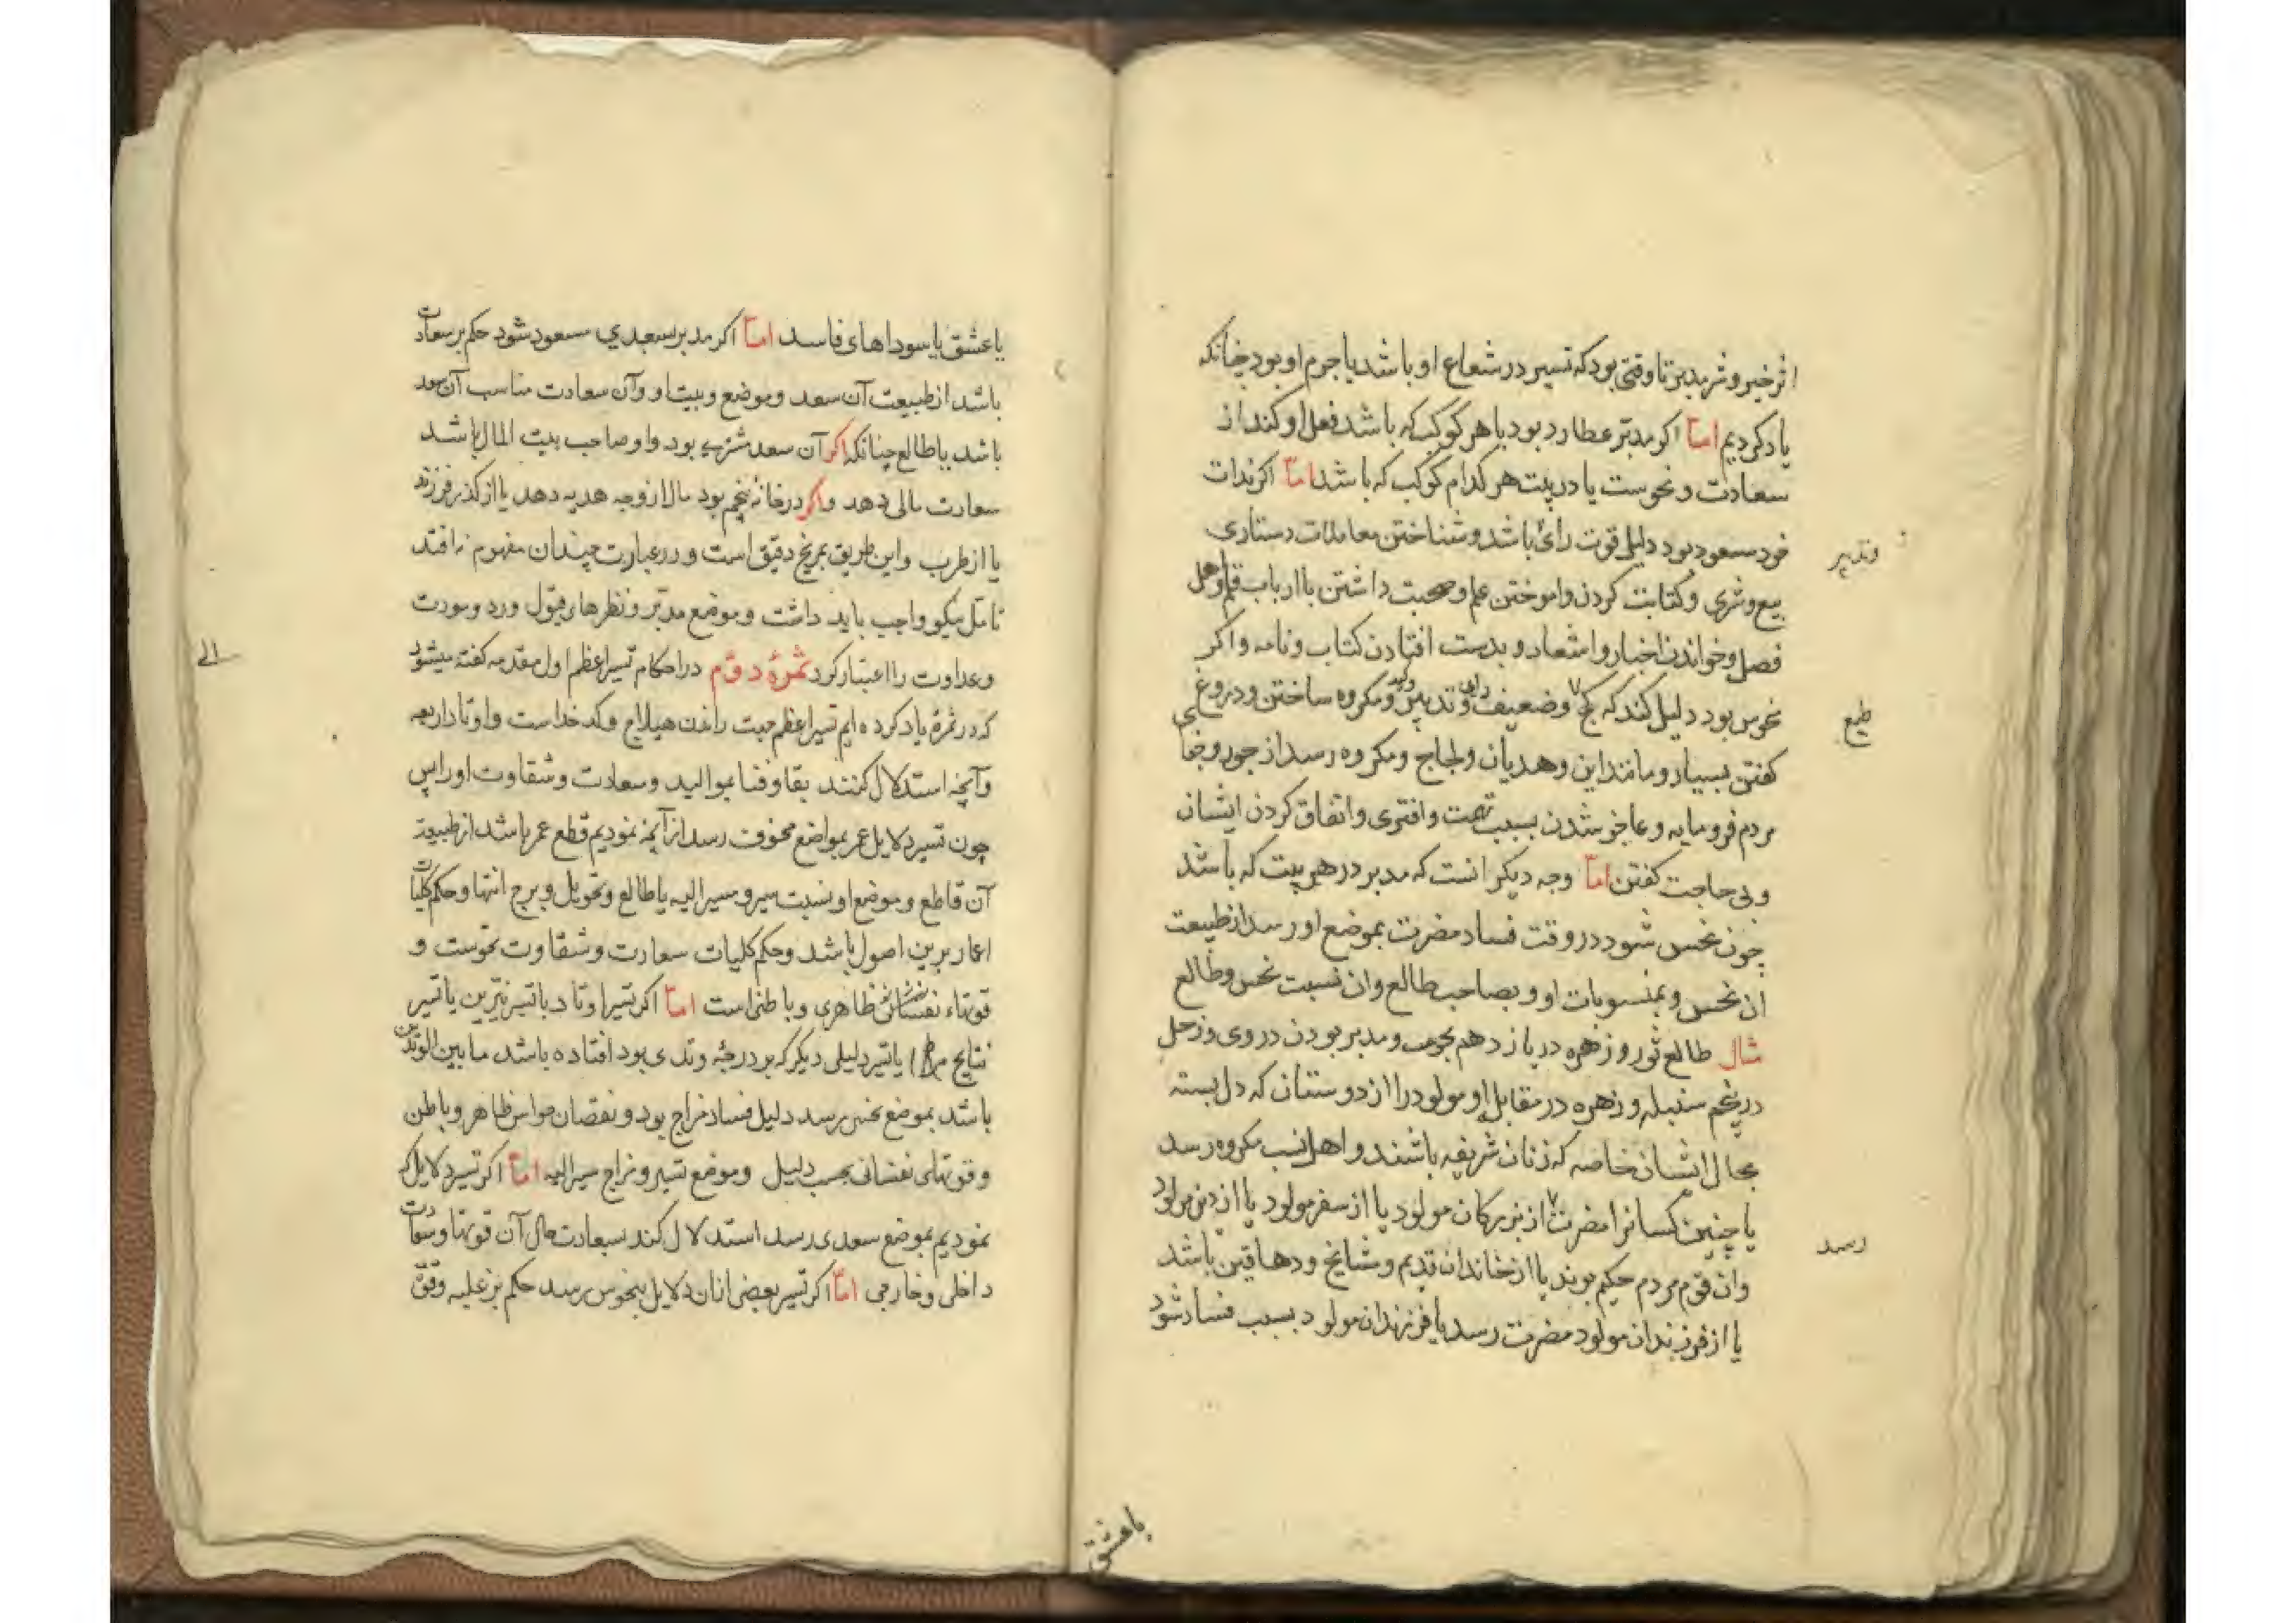 اثر خیر و شر مدبر تا وقتی بود که تسییر در شعاع او باشد یا جرم او بود چنانکه
یاد کردیم امّا اکر مدبّر عطارد بود با هر کوکب که باشد فعل او کند از
سعادت و نحوست یا در بیت هر کدام کوکب که باشد امّا اکر بذات
خود مسعود بود دلیل قوت رای باشد و شناختن معاملات دستاری
وتدبیر
بیع و شری و کتابت کردن و اموختن علم و صحبت داشتن با ارباب قلم و اهل
فضل و خواندن اخبار و اشعار و بدست افتادن کتاب و نامه و اکر
نحوس بود دلیل کند که کج و ضعیف رای و تدبیر و مکروه ساختن و دروغ
طبع
کفتن بسیار و مانند این و هدیان و لجاج و مکروه رسد از جور و جفای
مردم فرومایه و عاجز شدن بسبب تهمت و افتری و اتفاق کردن ایشان
و بی حاجت کفتن امّا وجه دیکر انست که مدبر در هر بیت که باشد
چون نحس شود در وقت فساد مضرت بموضع او رسد از طبیعت
ان نحس و بمنسوبات او و بصاحب طالع و ان نسبت نحس و طالع
مثال طالع ثور و زهره در یازدهم بحوت و مدبر بودن در وی و زحل
در پنجم سنبله و زهره در مقابل او مولود را از دوستان که دل بسته
بحال ایشان خاصه که زنان شریفه باشند و اهل نسب مکروه رسد
یا چنین کسانرا مضرت از بزرکان مولود یا از سفر مولود یا از دین مولود
رسد
وان قوم مردم حکیم بوند یا از خاندان قدیم و مشایخ و دهاقین باشد
یا از فرزندان مولود مضرت رسد یا فرزندان مولود بسبب فساد شود
یا عشق
یا عشق یا سوداهای فاسد امّا اکر مدبر بسعدی مسعود شود حکم بر سعادت
باشد از طبیعت آن سعد و موضع و بیت او و آن سعادت مناسب آن سعد
باشد با طالع چنانکه اکر آن سعد مشتری بود و او صاحب بیت المال باشد
سعادت مالی دهد و اکر در خانه پنجم بود مال از وجه هدیه دهد یا از کذر فرزند
یا از طرب و این طریق دقیق است و در عبارت چندان مفهوم نه افتد
تامل نیکو واجب باید داشت و موضع مدبّر و نظرهای قبول و رد و مودت
و عداوت را اعتبار کرد ثمرهٔ دوّم در احکام تسییر اعظم اول مقدمه کفته میشود
الی
که در ثمرهٔ یاد کرده ایم تسییر اعظم جهت راندن هیلاج و کدخداست و اوتاد اربعه
و آنچه استدلال کنند بقا و فنا بموالید و سعادت و شقاوت او را پس
چون تسییر دلایل عمر بمواضع مخوف رسد از آنچه نمودیم قطع عمر باشد از طبیعت
آن قاطع و موضع او نسبت مسیر و مسیر الیه با طالع و تحویل و برج انتها و حکم کلیات
اعمار برین اصول باشد و حکم کلیات سعادت و شقاوت نحوست و
قوتهاء نفسانی ظاهری و باطنی است امّا اکر تسییر اوتاد با تسییر نیّرین یا تسییر
نتایج یا تسییر دلیلی دیکر که بر درجهٔ وتدی بود افتاده باشد ما بین الوتدین
باشد بموضع نحس رسد دلیل فساد مزاج بود و نقصان حواس ظاهر و باطن
و قوتهای نفسانی بحسب دلیل و موضع تسییر و مزاج مسیر الیه امّا اکر تسییر دلایل که
نمودیم بموضع سعدی رسد استدلال کند بسعادت حال آن قوتها و سعادت
داخلی و خارجی امّا اکر تسییر بعضی ازان دلایل بنحوس رسد حکم بر غلبه و قوّة